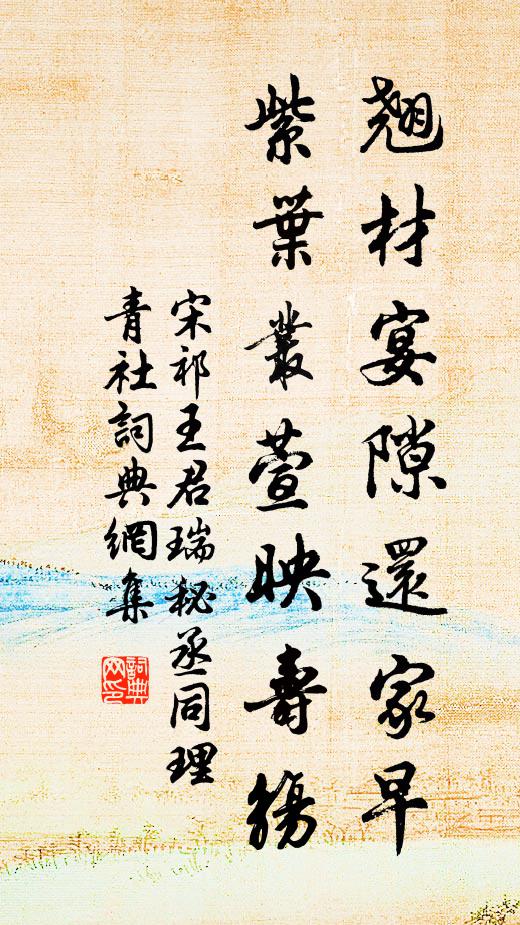 翹材宴隙還家早
紫葉叢萱映壽觴
宋祁王君瑞秘丞同理
青社詞典網集
詞典網印